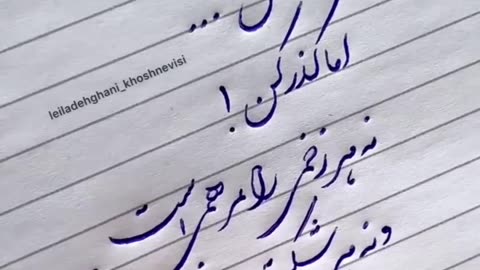 ...
اما گذر کن !
leiladehghani_khoshnevisi
نه هر زخمی را مرهمی است
و نه هر